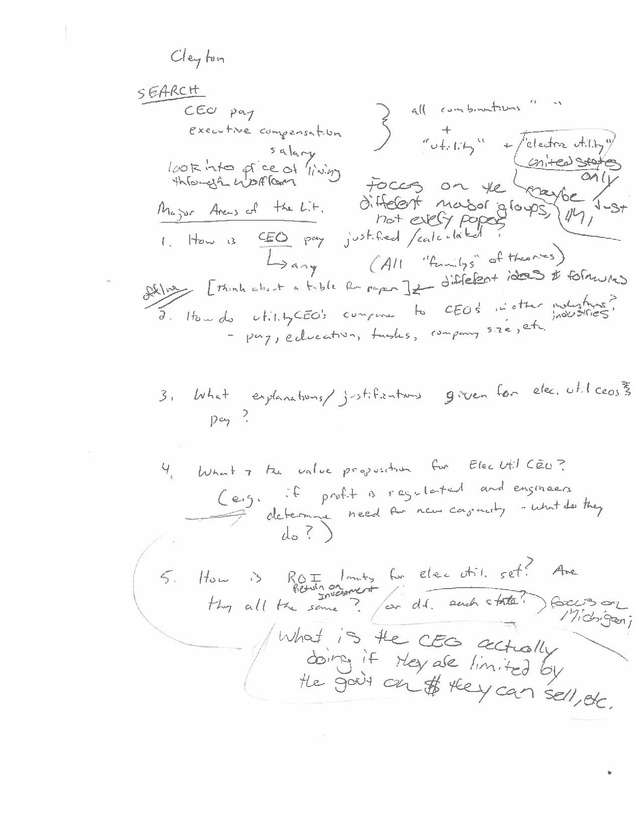 Cleyton
SEARCH
CEO pay
executive compensation
salary
} all combinations " "
+
"utility" + "electric utility"
united states
only
look into price of living
through wolfram
Focus on the maybe just
different major groups, MI
not every paper
Major Areas of the Lit.
1. How is CEO pay justified/calculated?
↳ any (All "familys" of theories)
define [think about a table for paper] ← different ideas & formulas
2. How do utility CEO's compare to CEO's in other industries?
industries
- pay, education, tasks, company size, etc.
3. What explanations/justifications given for elec. util CEOs
pay?
4. What is the value proposition for Elec Util CEO?
(e.g. if profit is regulated and engineers
determine need for new capacity - what do they
do?)
5. How is ROI limits for elec util. set? Are
Return on
Investment
they all the same? or d.t. each state? focus on
Michigan
What is the CEO actually
doing if they are limited by
the gov't on $ they can sell, etc.